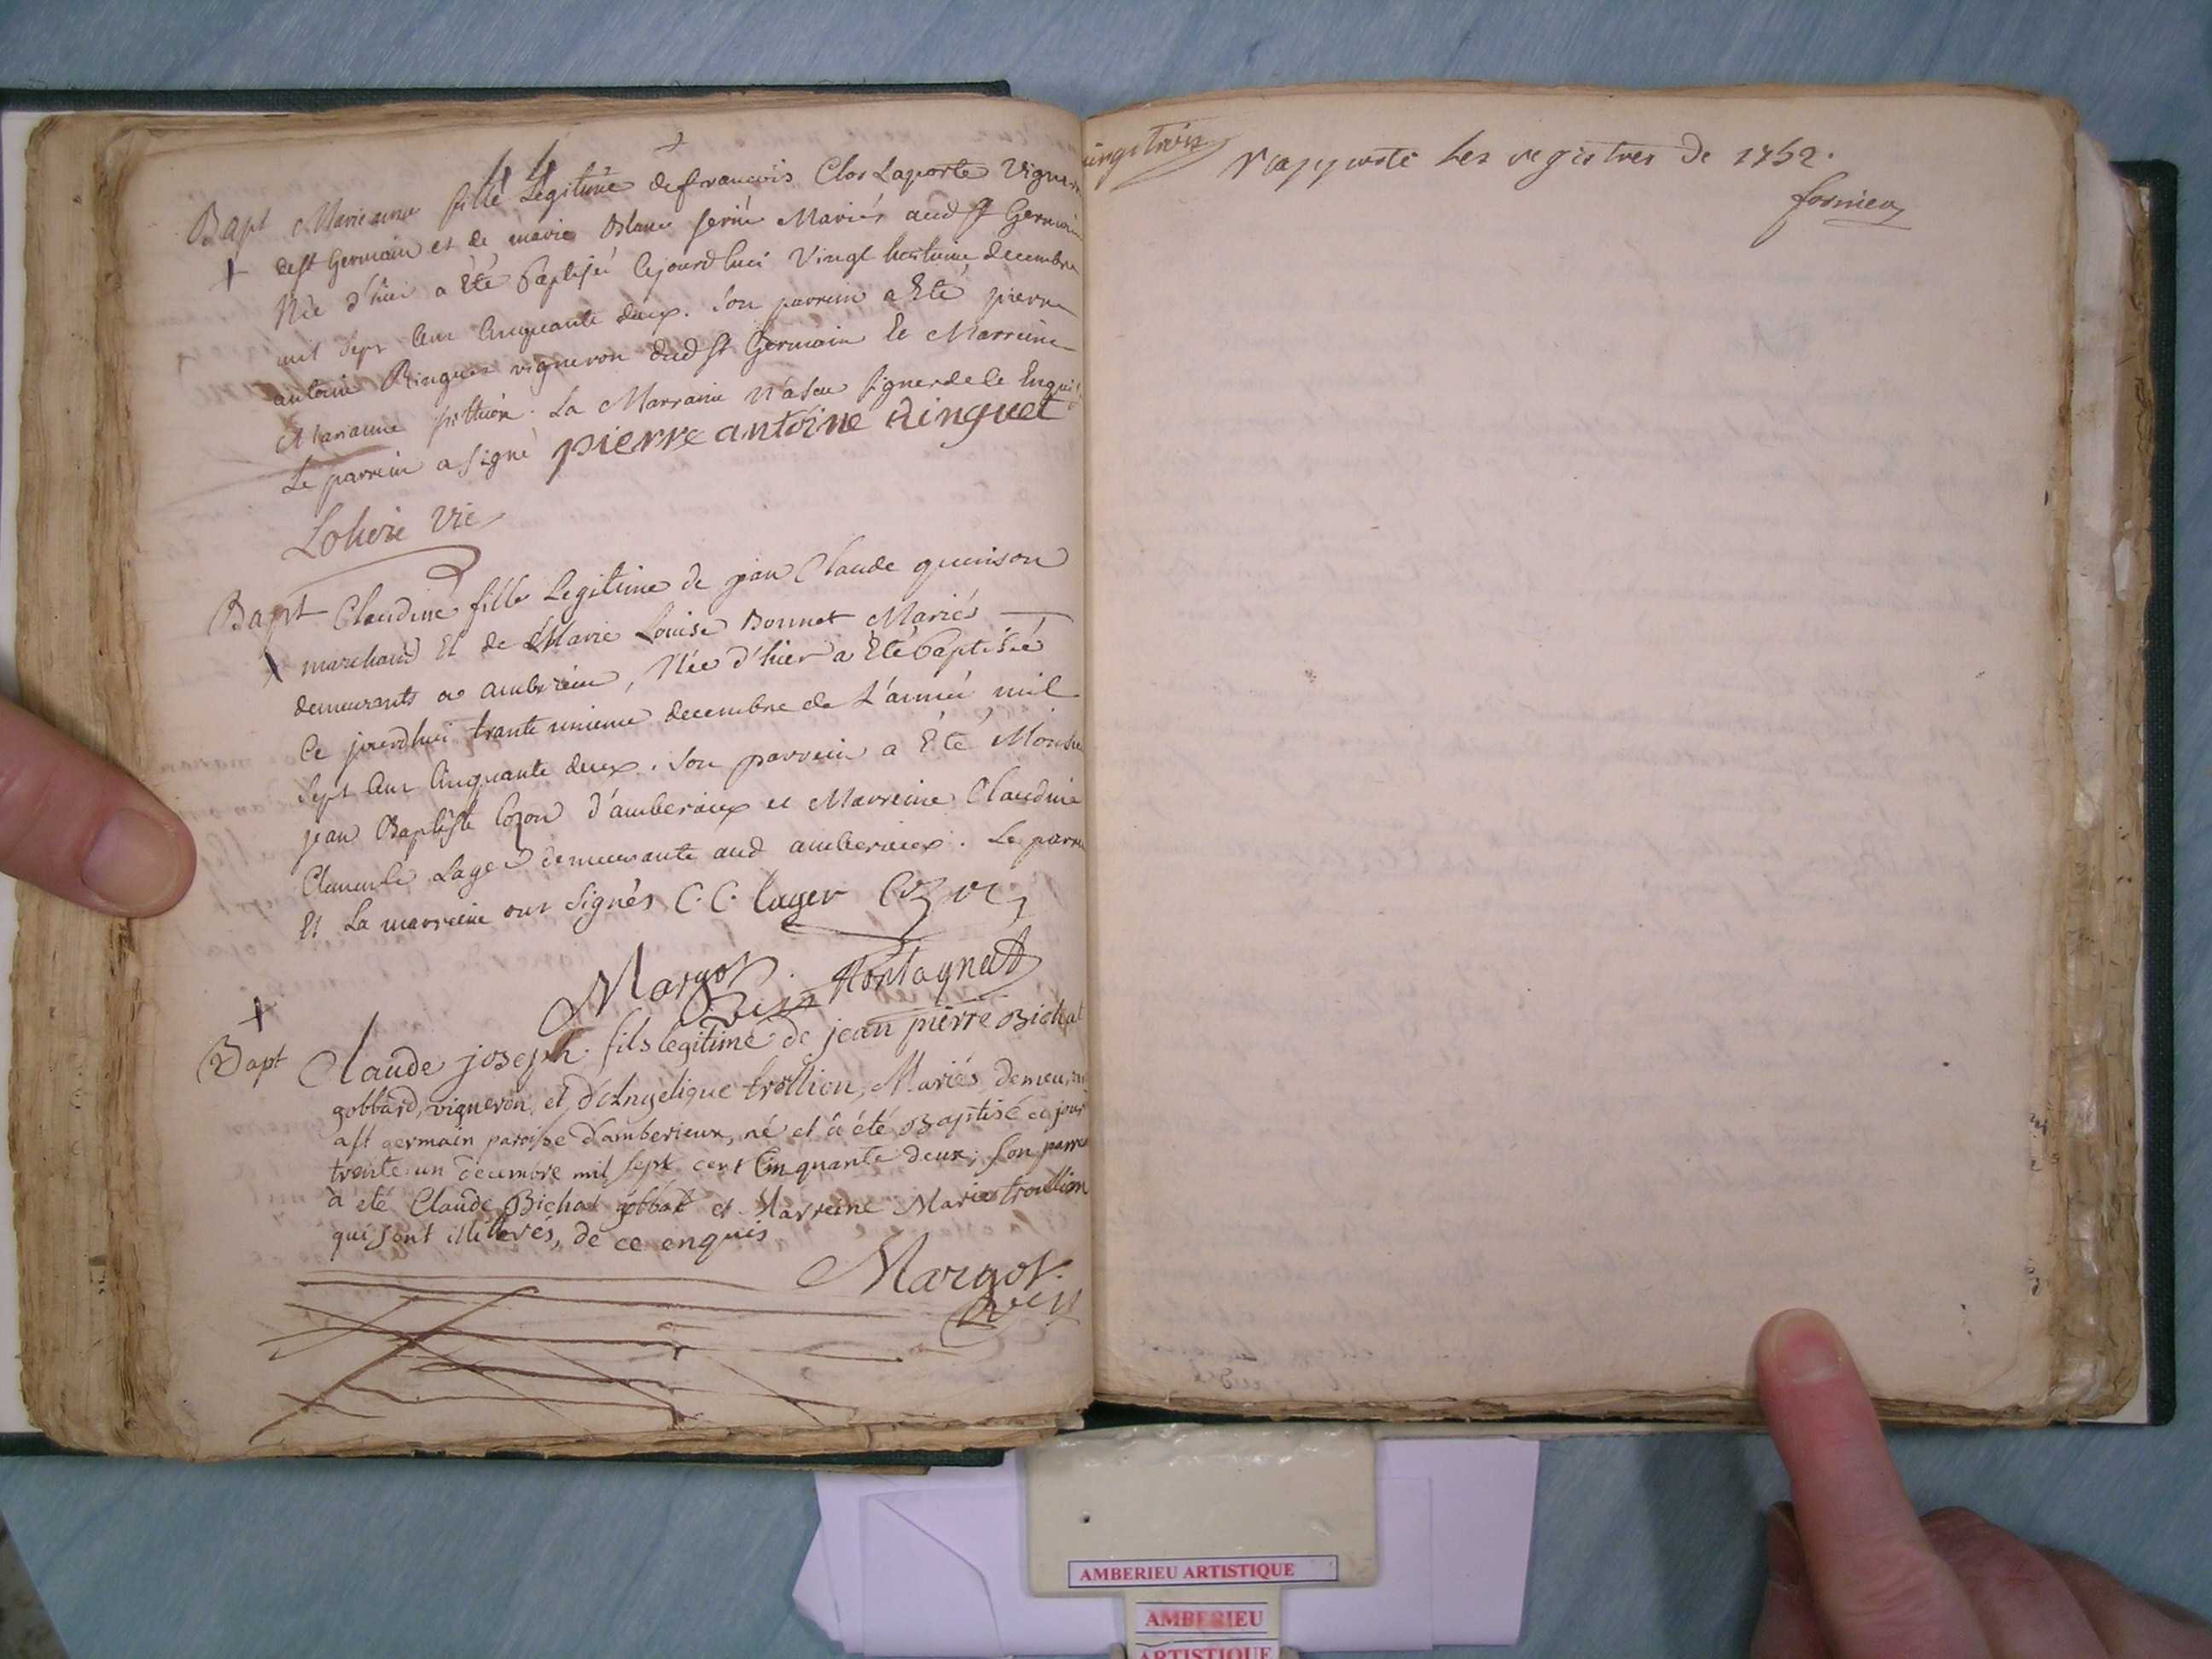 44
Bapt Marieanne fille Legitime de francois Clos Laporte Vigneron
de st Germain et de marie Blanc ferné Mariés aud st Germain
Née d'hier a été baptisée cejourdhui Vingt huitieme decembre
mil sept cens cinquante deux. Son parrein a Eté pierre
antoine Ringuet vigneron dud st Germain et Marreine
Marianne . La Marraine n'a scu signer de ce Enquise
Le parrein a signé pierre antoine Ringuet
Lohere vic
Bapt Claudine fille Legitime de jean Claude guinson
marchand Et de Marie Louise Bonnet Mariés
demeurants a amberieu, Née d'hier a Eté baptisée
ce jourdhui trante unieme decembre de L'année mil
sept cens cinquante deux. Son parrein a Eté Monsieur
jean Baptiste Cozon d'amberieux et Marreine Claudine
Clemente Lager demeurante aud amberieux. Le parrein
Et La marreine ont signés C. C. lager Cozon
Margot vic Montagnat
Bapt Claude joseph fils legitime de jean pierre Bichat
gobbard, vigneron, et d'Angelique trollion, Mariés demeurant
a st germain paroisse d'amberieux, né et à été Baptisé ce jour
trente un decembre mil sept cent Cinquante deux; son parrein
à été Claude Bichat gobbat et Marreine Marie trollion
qui sont illiterés, de ce enquis
Margot
vic
vingt trois
rapporté les registres de 1752.
AMBERIEU ARTISTIQUE
AMBERIEU
ARTISTIQUE